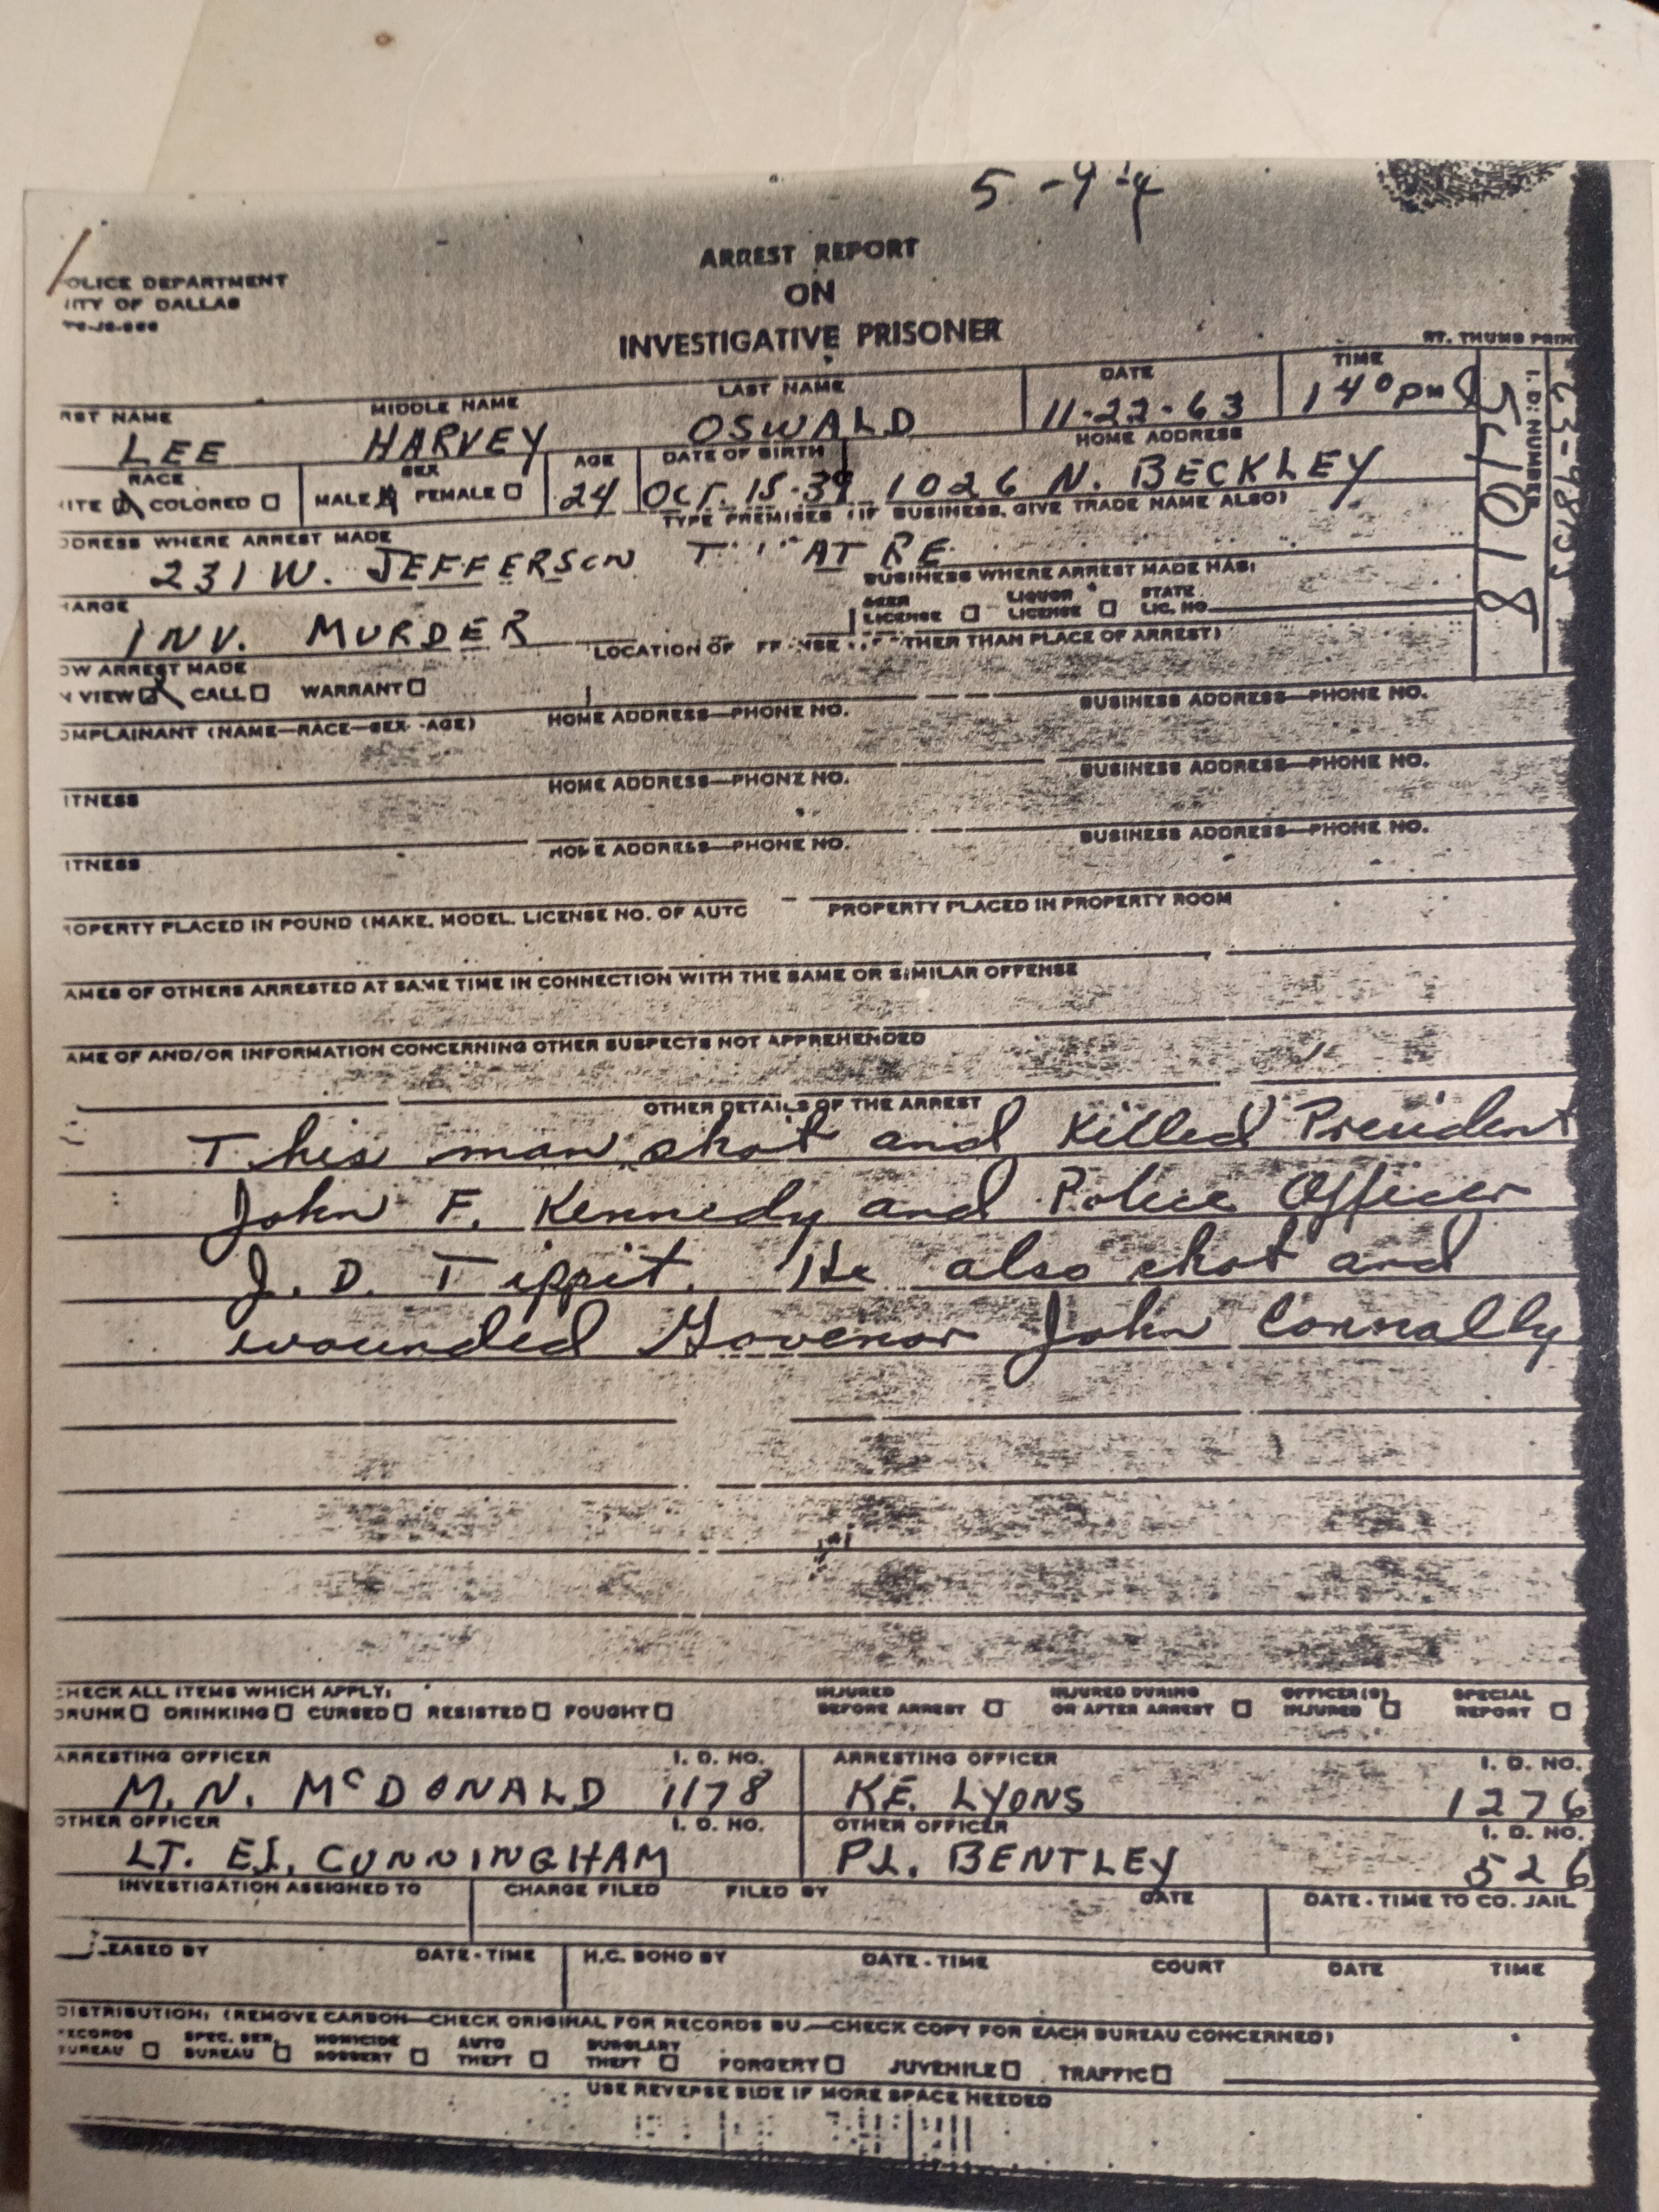 5-4-4
ARREST REPORT
ON
INVESTIGATIVE PRISONER
OLICE DEPARTMENT
ITY OF DALLAS
RT. THUMB PRIN
RST NAME MIDDLE NAME LAST NAME DATE TIME
LEE HARVEY OSWALD 11-22-63 1 40 pm
I. D. NUMBER
54018
63-98155
RACE SEX AGE DATE OF BIRTH HOME ADDRESS
ITE COLORED MALE FEMALE 24 OCT. 15-39 1026 N. BECKLEY
DDRESS WHERE ARREST MADE TYPE PREMISES (IF BUSINESS, GIVE TRADE NAME ALSO)
231 W. JEFFERSON T ATRE
HARGE BUSINESS WHERE ARREST MADE HAS:
INV. MURDER BEER LICENSE LIQUOR LICENSE STATE LIC. NO.
OW ARREST MADE LOCATION OF FF NSE THER THAN PLACE OF ARREST)
N VIEW CALL WARRANT
OMPLAINANT (NAME—RACE—SEX-AGE) HOME ADDRESS—PHONE NO. BUSINESS ADDRESS—PHONE NO.
ITNESS HOME ADDRESS—PHONE NO. BUSINESS ADDRESS—PHONE NO.
ITNESS HOME ADDRESS—PHONE NO. BUSINESS ADDRESS—PHONE NO.
ROPERTY PLACED IN POUND (MAKE, MODEL, LICENSE NO. OF AUTO PROPERTY PLACED IN PROPERTY ROOM
AMES OF OTHERS ARRESTED AT SAME TIME IN CONNECTION WITH THE SAME OR SIMILAR OFFENSE
AME OF AND/OR INFORMATION CONCERNING OTHER SUSPECTS NOT APPREHENDED
OTHER DETAILS OF THE ARREST
This man shot and killed President
John F. Kennedy and Police Officer
J. D. Tippit. He also shot and
wounded Govenor John Connally
CHECK ALL ITEMS WHICH APPLY:
DRUNK DRINKING CURSED RESISTED FOUGHT INJURED BEFORE ARREST INJURED DURING OR AFTER ARREST OFFICER(S) INJURED SPECIAL REPORT
ARRESTING OFFICER I. D. NO. ARRESTING OFFICER I. D. NO.
M. N. McDONALD 1178 K.E. LYONS 1276
OTHER OFFICER I. D. NO. OTHER OFFICER I. D. NO.
LT. E.L. CUNNINGHAM P.L. BENTLEY 526
INVESTIGATION ASSIGNED TO CHARGE FILED FILED BY DATE DATE-TIME TO CO. JAIL
EASED BY DATE-TIME H.C. BOND BY DATE-TIME COURT DATE TIME
DISTRIBUTION: (REMOVE CARBON—CHECK ORIGINAL FOR RECORDS BU.—CHECK COPY FOR EACH BUREAU CONCERNED)
RECORDS BUREAU SPEC. SER. BUREAU HOMICIDE ROBBERY AUTO THEFT BURGLARY THEFT FORGERY JUVENILE TRAFFIC
USE REVERSE SIDE IF MORE SPACE NEEDED